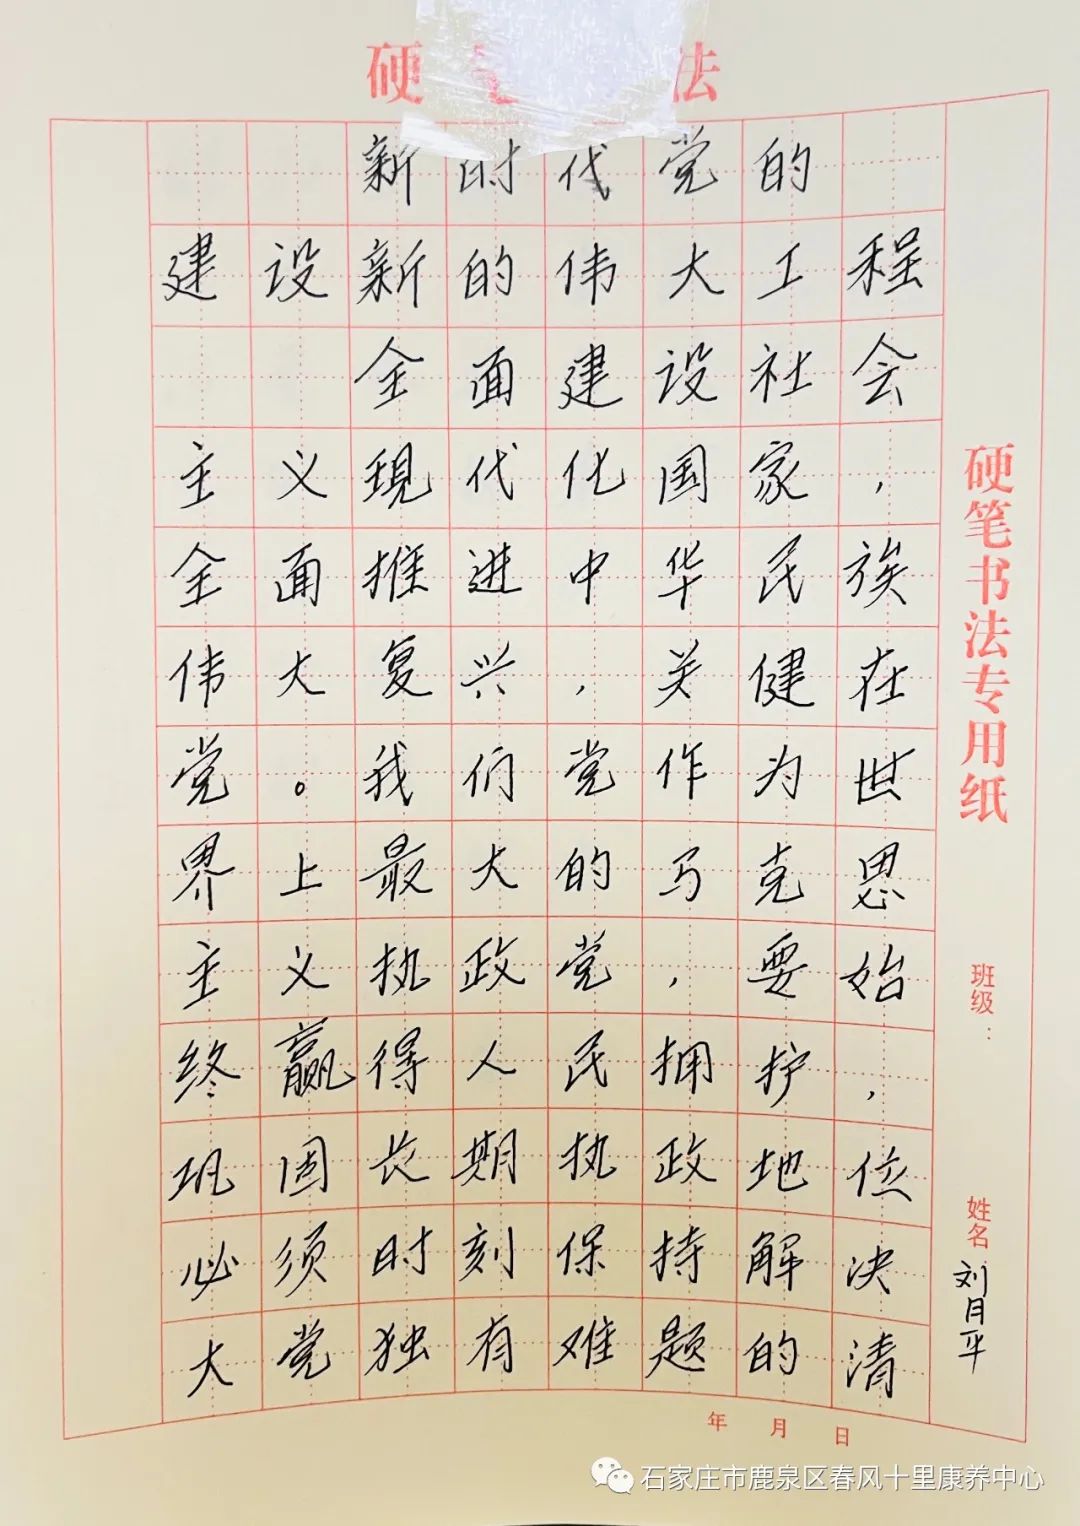 硬 法
新时代党的
建设新的伟大工程
全面建设社会
主义现代化国家，
全面推进中华民族
伟大复兴，关健在
党。我们党作为世
界上最大的马克思
主义执政党，要始
终赢得人民拥护，
巩固长期执政地位
必须时刻保持解决
大党独有难题的清
硬笔书法专用纸
班级：
姓名 刘月平
年 月 日
石家庄市鹿泉区春风十里康养中心